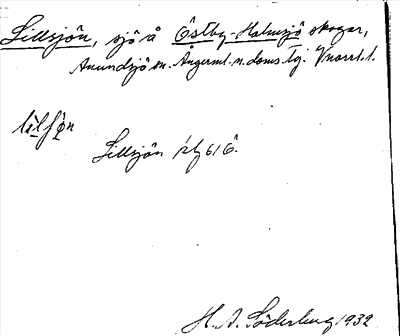 Lillsjön, sjö å Östby-Holmsjö skogar,
Anundsjö sn. Ångerml. n. doms. tg. Vnorrl. l.
Lillsjön 616.
H. A. Söderberg 1932